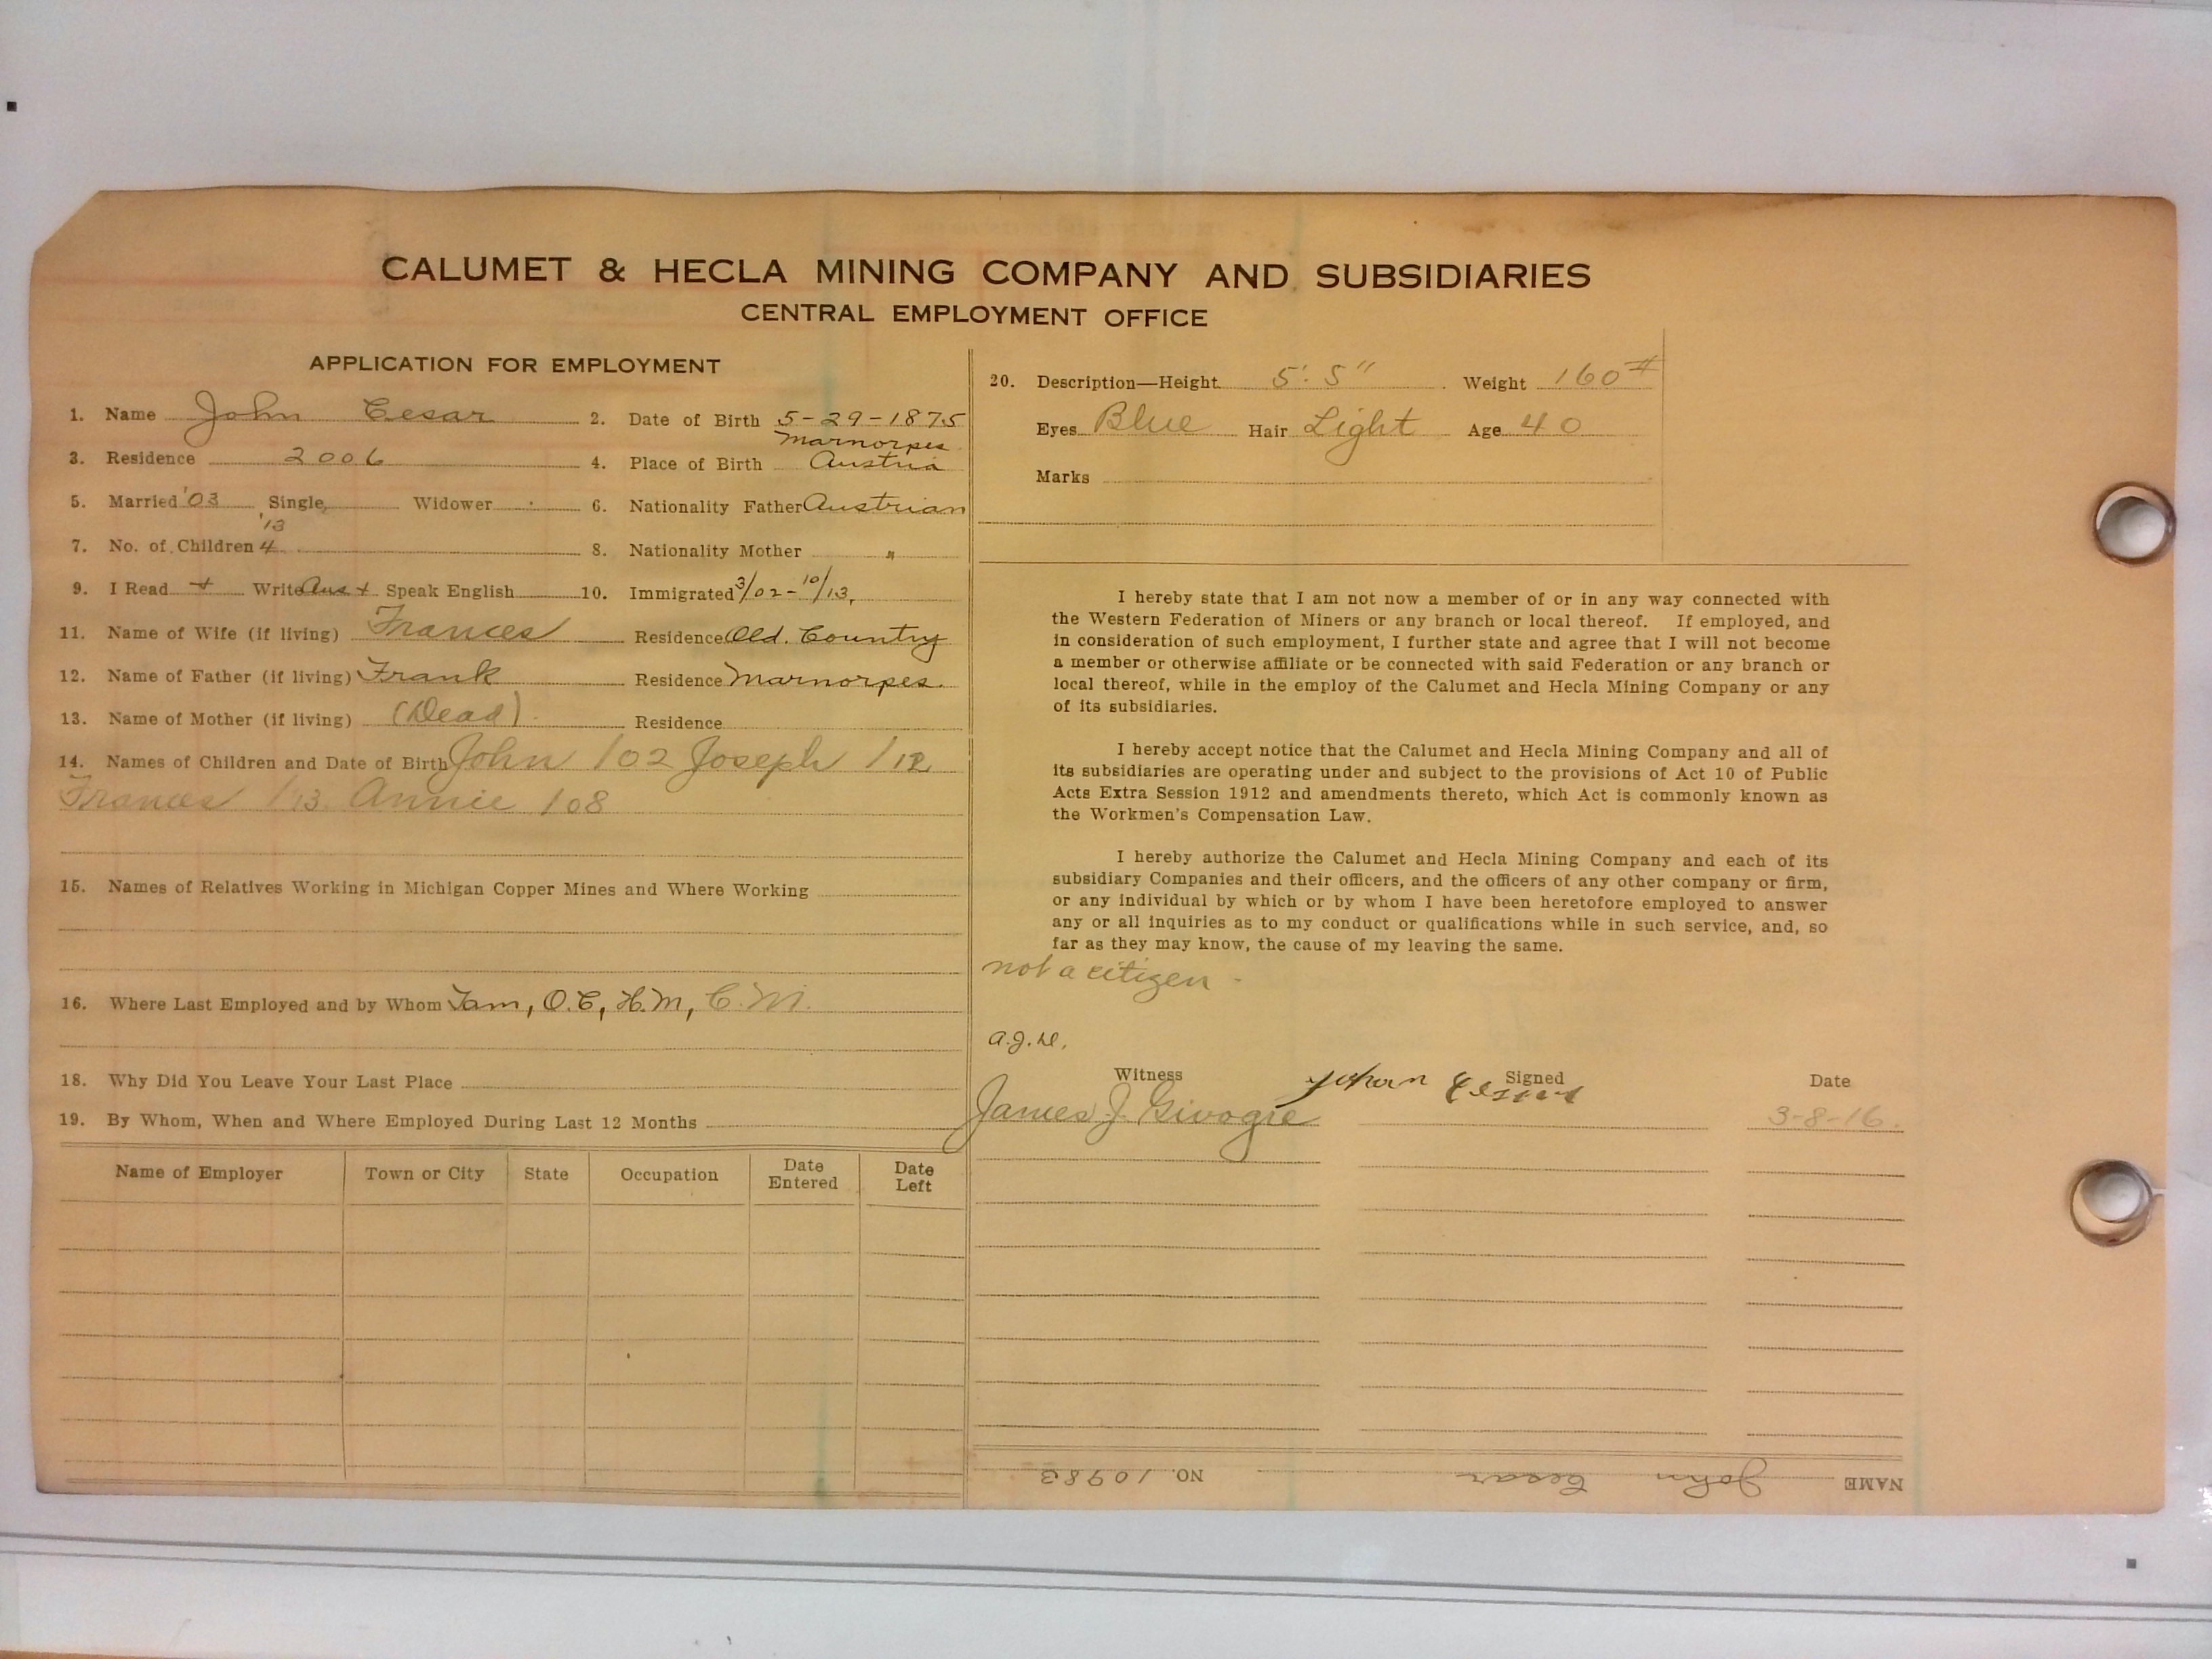 CALUMET & HECLA MINING COMPANY AND SUBSIDIARIES
CENTRAL EMPLOYMENT OFFICE
APPLICATION FOR EMPLOYMENT
1. Name John Cesar 2. Date of Birth 5-29-1875
Marnorpes
3. Residence 2006 4. Place of Birth Austria
5. Married '03 Single Widower 6. Nationality Father Austrian
'13
7. No. of Children 4 8. Nationality Mother "
9. I Read + Write Aus + Speak English 10. Immigrated 3/02-10/13,
11. Name of Wife (if living) Frances Residence Old. Country
12. Name of Father (if living) Frank Residence Marnorpes.
13. Name of Mother (if living) (Dead). Residence
14. Names of Children and Date of Birth John /02 Joseph /12
Frances /13. Annie /08
15. Names of Relatives Working in Michigan Copper Mines and Where Working
16. Where Last Employed and by Whom Tam, O.C, H.M, C.M.
18. Why Did You Leave Your Last Place
19. By Whom, When and Where Employed During Last 12 Months
Name of Employer Town or City State Occupation Date Entered Date Left
20. Description—Height 5'. 5" Weight 160#
Eyes Blue Hair Light Age 40
Marks
I hereby state that I am not now a member of or in any way connected with
the Western Federation of Miners or any branch or local thereof. If employed, and
in consideration of such employment, I further state and agree that I will not become
a member or otherwise affiliate or be connected with said Federation or any branch or
local thereof, while in the employ of the Calumet and Hecla Mining Company or any
of its subsidiaries.
I hereby accept notice that the Calumet and Hecla Mining Company and all of
its subsidiaries are operating under and subject to the provisions of Act 10 of Public
Acts Extra Session 1912 and amendments thereto, which Act is commonly known as
the Workmen's Compensation Law.
I hereby authorize the Calumet and Hecla Mining Company and each of its
subsidiary Companies and their officers, and the officers of any other company or firm,
or any individual by which or by whom I have been heretofore employed to answer
any or all inquiries as to my conduct or qualifications while in such service, and, so
far as they may know, the cause of my leaving the same.
not a citizen -
Witness Signed Date
James J. 3-8-16.
NAME John Cesar NO. 10983